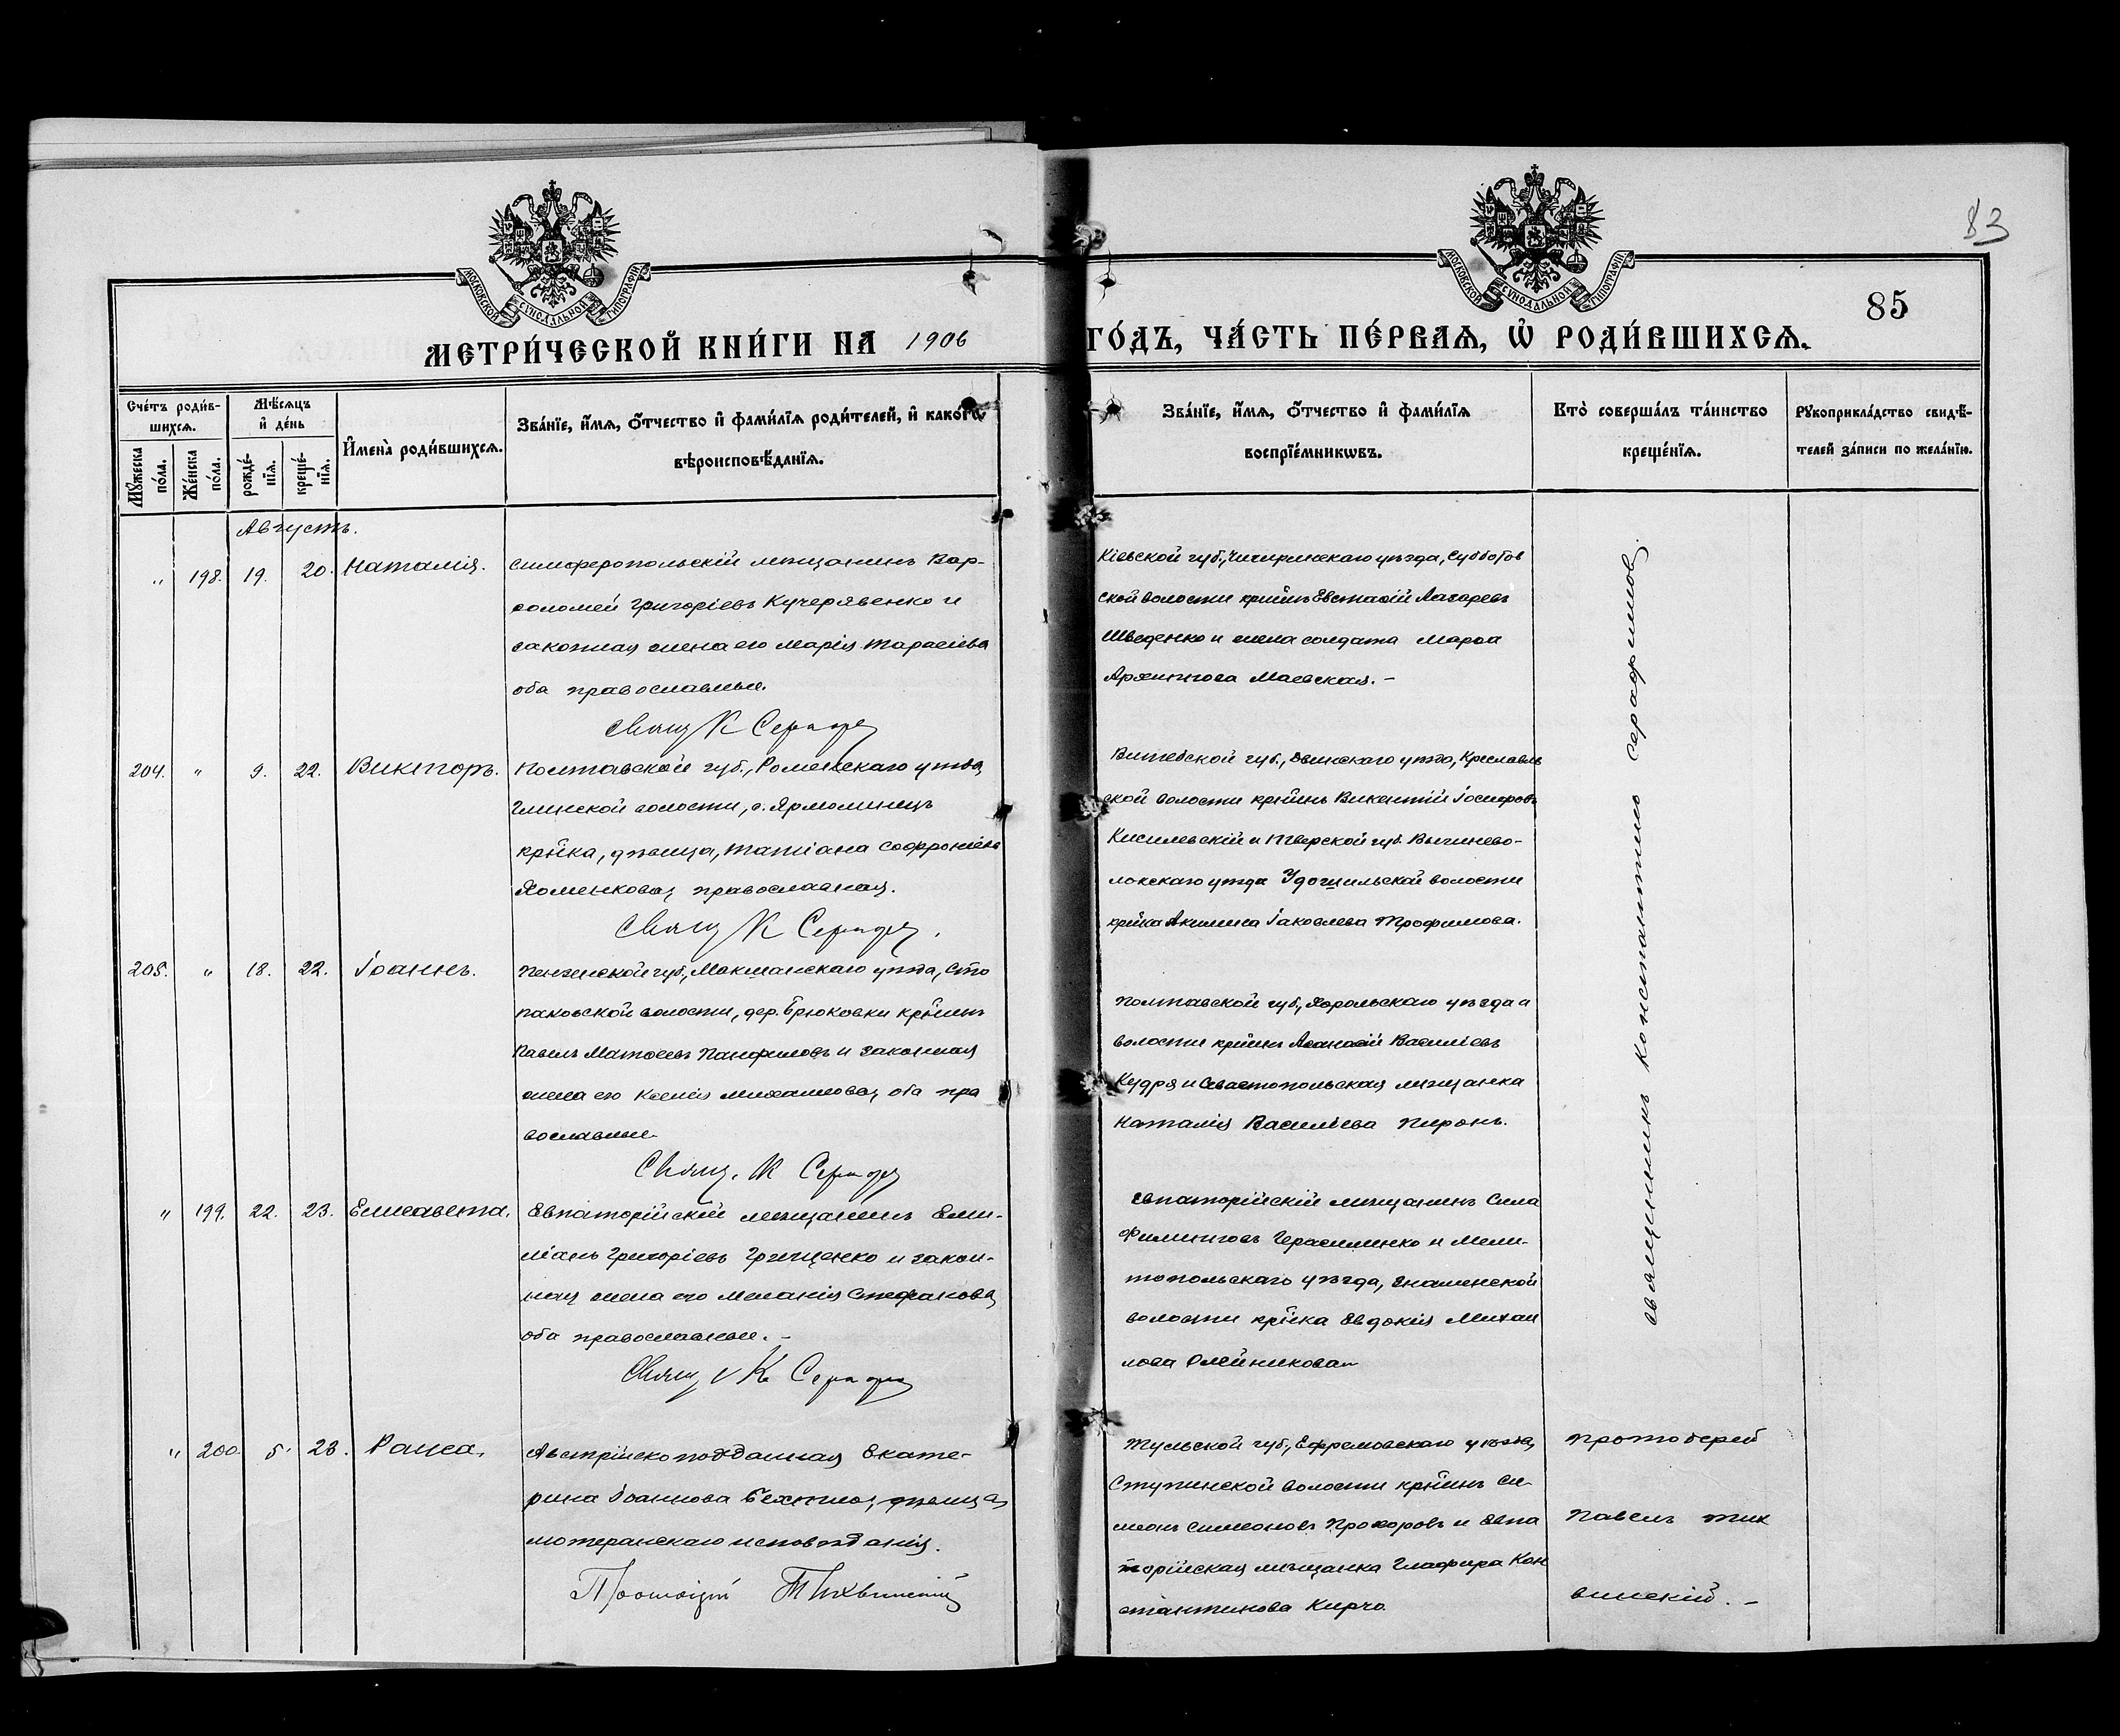 83
МОСКОВСКОЙ СУНОДАЛЬНОЙ ТИПОГРАФІИ
МОСКОВСКОЙ СУНОДАЛЬНОЙ ТИПОГРАФІИ
85
МЕТРИ́ЧЕСКОЙ КНИ́ГИ НА 1906 ГО́ДЪ, ЧА́СТЬ ПЕ́РВАѦ, Ѽ РОДИ́ВШИХСѦ.
Сче́тъ роди́в-
шихсѧ.
Мꙋ́жеска по́ла.
Же́нска по́ла.
Мѣ́сѧцъ
и҆ де́нь
рожде́-
нїѧ.
креще́-
нїѧ.
И҆мена̀ роди́вшихсѧ.
Зва́нїе, и҆́мѧ, ѻ҆́тчество и҆ фами́лїѧ роди́телей, и҆ како́гѡ
вѣроисповѣ́данїѧ.
Зва́нїе, и҆́мѧ, ѻ҆́тчество и҆ фами́лїѧ
воспрїе́мникѡвъ.
Кто̀ соверша́лъ та́инство
креще́нїѧ.
Рꙋкоприкла́дство свидѣ́-
телей за́писи по жела́нїю.
Августъ.
„ 198. 19. 20. Наталія.
Симферопольскій мѣщанинъ Вар-
ѳоломей Григоріевъ Кучерявенко и
законная жена его Марія Тарасіева
оба православные.
Свящ К Сераф
Кіевской губ., Чигиринскаго уѣзда, Субботов
ской волости кр-нинъ Евстаѳій Лазаревъ
Шведенко и жена солдата Марѳа
Архиппова Маевская. –
204. „ 9. 22. Викторъ.
Полтавской губ., Роменскаго уѣзда,
Глинской волости, с. Ярмолинецъ
кр-нка, дѣвица, Татіана Софроніева
Хоменкова, православная.
Свящ К Сераф.
Витебской губ., Двинскаго уѣзда, Креславль
ской волости кр-нинъ Викентій Іосифовъ
Кисилевскій и Тверской губ. Вышнево-
лоцкаго уѣзда Удомльской волости
кр-нка Акилина Іаковлева Трофимова.
205. „ 18. 22. Іоаннъ.
Пензенской губ., Мокшанскаго уѣзда, Сто
паковской волости, дер. Брюховки кр-нинъ
Павелъ Матѳеевъ Панфиловъ и законная
жена его Ксенія Михаилова, оба пра
вославные.
Свящ. К Сераф
Полтавской губ., Хорольскаго уѣзда и
волости кр-нинъ Аѳанасій Василіевъ
Кудря и Севастопольская мѣщанка
Наталія Василіева Пиронъ.
„ 199. 22. 23. Елисавета.
Евпаторійскій мѣщанинъ Еми-
ліанъ Григоріевъ Грищенко и закон-
ная жена его Меланія Стефанова,
оба православные. –
Свящ К Сераф
Евпаторійскій мѣщанинъ Сила
Филипповъ Герасименко и Мели-
топольскаго уѣзда, Знаменской
волости кр-нка Евдокія Михаи
лова Олейникова
священникъ Константинъ Серафимовъ.
„ 200. 5. 23. Раиса.
Австрійско подданная Екате-
рина Іоаннова дѣвица,
лютеранскаго исповѣданія.
Протоіерей Тихвинскій
Тульской губ., Ефремовскаго уѣзда,
Ступинской волости кр-нинъ Си
меонъ Симеоновъ Прохоровъ и Евпа
торійская мѣщанка Глафира Кон
стантинова Кирчо.
протоіерей
Павелъ Тих
винскій. –